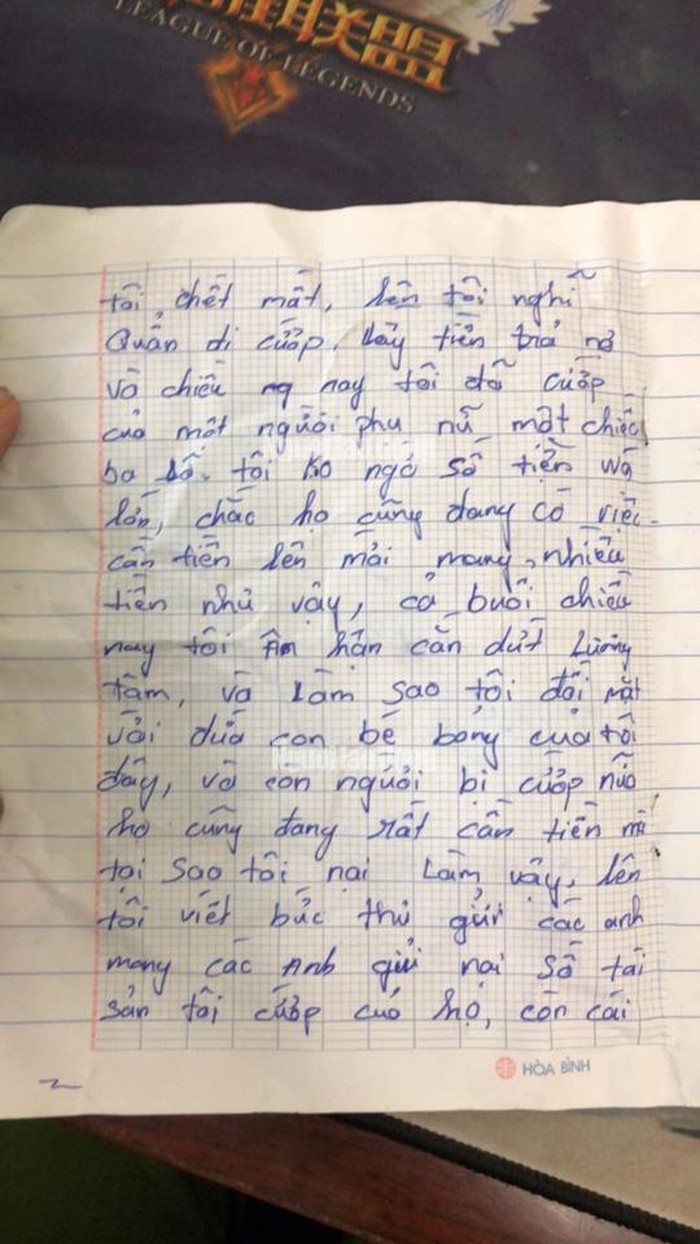 联盟
LEAGUE OF LEGENDS
tôi chết mất, lên tôi nghĩ
Quẩn đi cướp, lấy tiền trả nợ
và chiều ng nay tôi đã cướp
của một người phụ nữ một chiếc
ba lô. tôi ko ngờ số tiền wá
lớn, chắc họ cũng đang có việc
cần tiền lên mới mang, nhiều
tiền như vậy, cả buổi chiều
nay tôi Ân hận cắn dứt Lương
tâm, và Làm sao tôi đối mặt
với đứa con bé bỏng của tôi
đây, và còn người bị cướp nữa
họ cũng đang rất cần tiền mà
tại sao tôi nại Làm vậy, lên
tôi viết bức thư gửi các anh
mong các Anh gửi nại số tài
sản tôi cướp của họ, còn cái
HÒA BÌNH